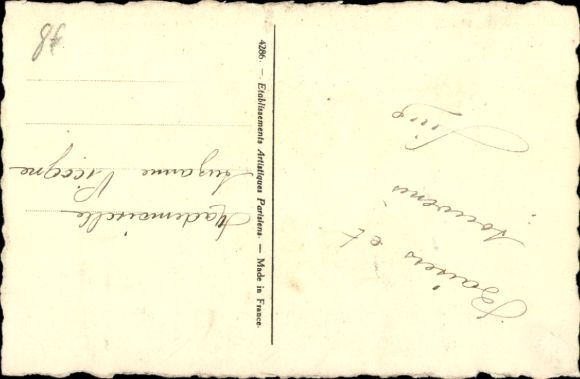 Baisers et
souvenirs
4286. — Etablissements Artistiques Parisiens. — Made in France.
Mademoiselle
Suzanne Vicogne